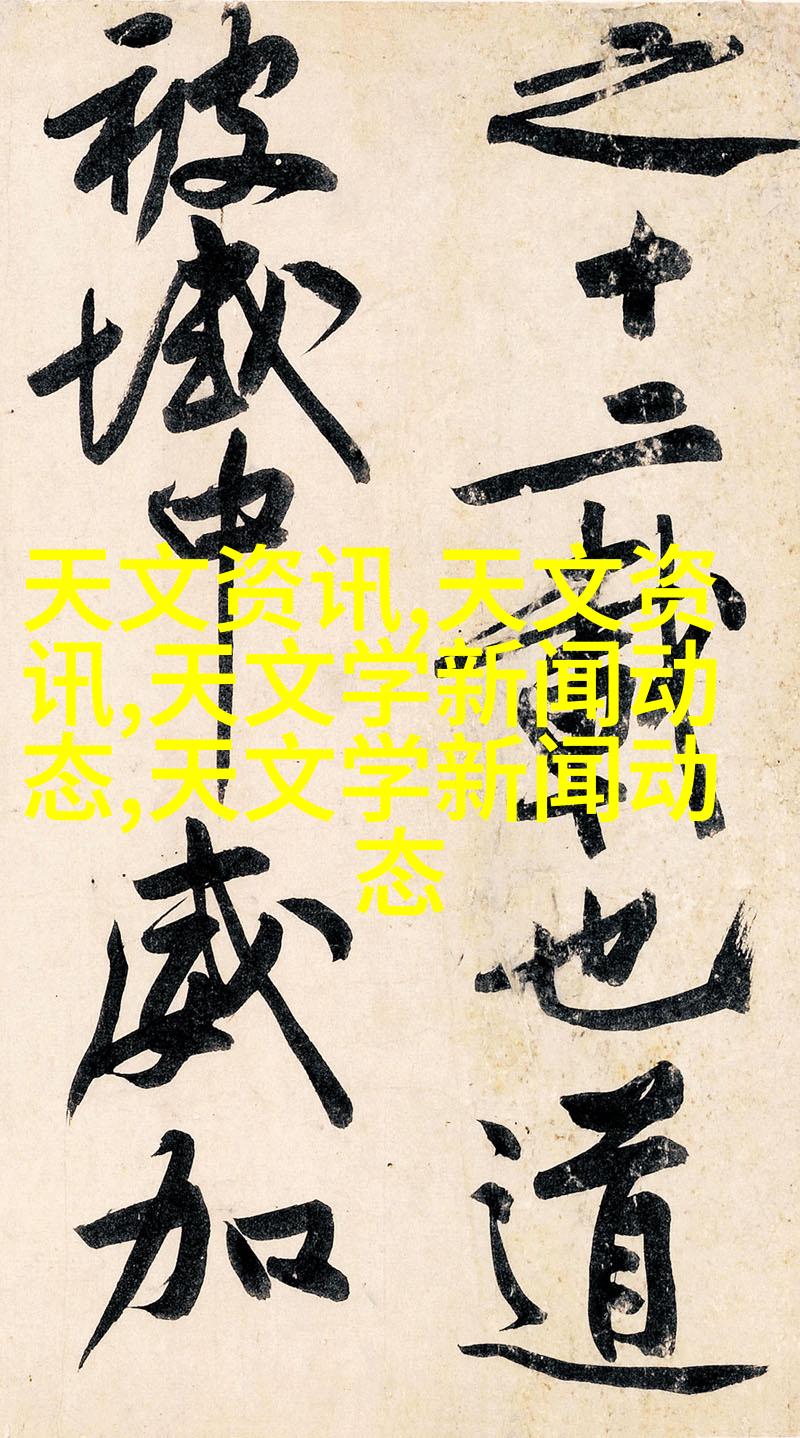 之十二載也道
被域中威加
天文资讯,天文资
讯,天文学新闻动
态,天文学新闻动
态